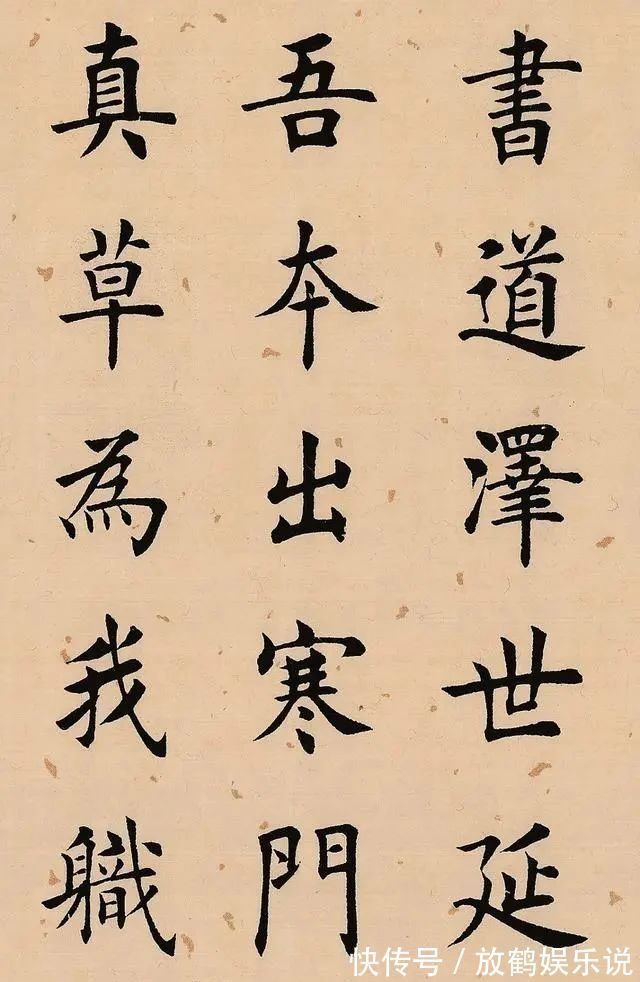 書道澤世延
吾本出寒門
真草為我軄
快传号／放鹤娱乐说